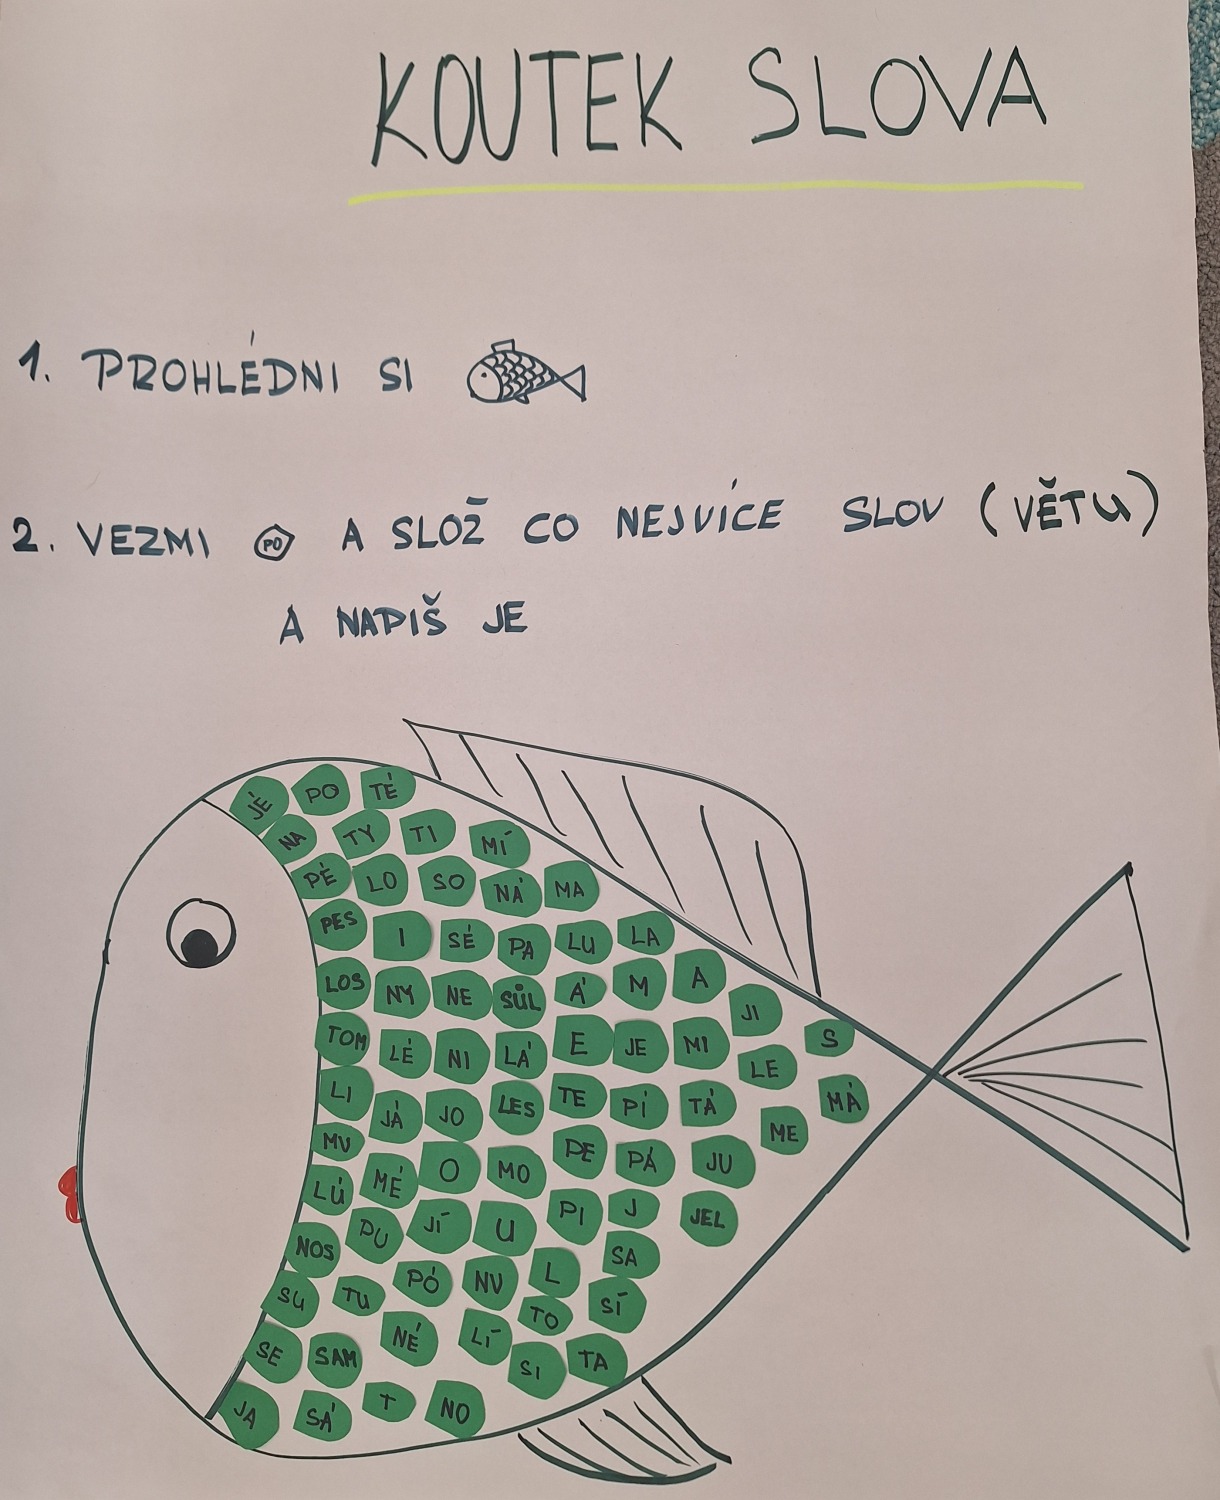 KOUTEK SLOVA
1. PROHLÉDNI SI
2. VEZMI PO A SLOŽ CO NEJVÍCE SLOV (VĚTU)
A NAPIŠ JE
JÉ PO TÉ
NA TY TI MÍ
PÉ LO SO NÁ MA
PES I SÉ PA LU LA
LOS NY NE SŮL Á M A
JI S
TOM LÉ NI LÁ E JE MI LE
LI JÁ JO LES TE PÍ TÁ MÁ
MU MÉ O MO PE PÁ JU ME
LÚ PU JÍ U PI J JEL
NOS PÓ NU L SA
SU TU NÉ LÍ TO SÍ
SE SAM SI TA
JA SÁ T NO